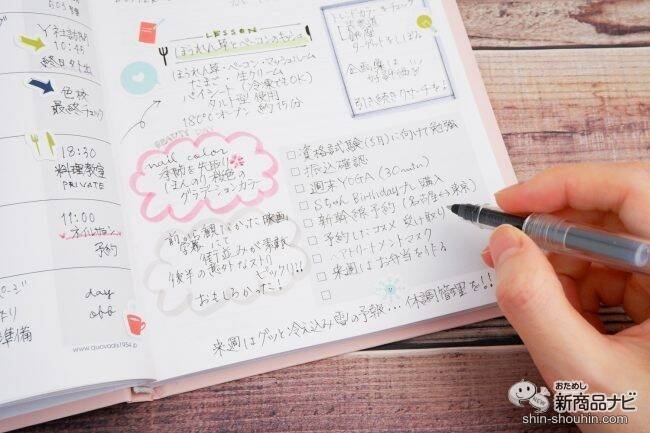 Y社訪問
10:45
終日外出
色校
最終チェック
18:30
料理教室
PRIVATE
11:00
ネイルサロン
予約
day
off
準備
www.quovadis1954.
LESSON
ほうれん草とベーコンのキッシュ
ほうれん草・ベーコン・マッシュルーム
たまご・生クリーム
パイシート(冷凍でもOK)
タルト型 使用
180℃ オーブン 約15分
BEAUTY
nail color
季節を先取り
ほんのり桜色の
グラデーションカラー
前から観たかった映画
字幕にて
街並みが素敵
後半の意外なストーリー
ビックリ!!
おもしろかった!
トレンドカラーをチェック
ターゲットをしぼる
企画案は
好評価
引き続きリサーチを!
□ 資格試験(5月)に向けて勉強
□ 振込確認
□ 週末YOGA (30min)
□ SちゃんBirthday 購入
□ 新幹線予約 (名古屋⇔東京)
□ 予約したコスメ 受け取り
□ ヘアトリートメントマスク
□ 来週はお弁当を作る
□
来週はグッと冷え込み雪の予報… 体調管理を!!
おためし
新商品ナビ
NEW
shin-shouhin.com